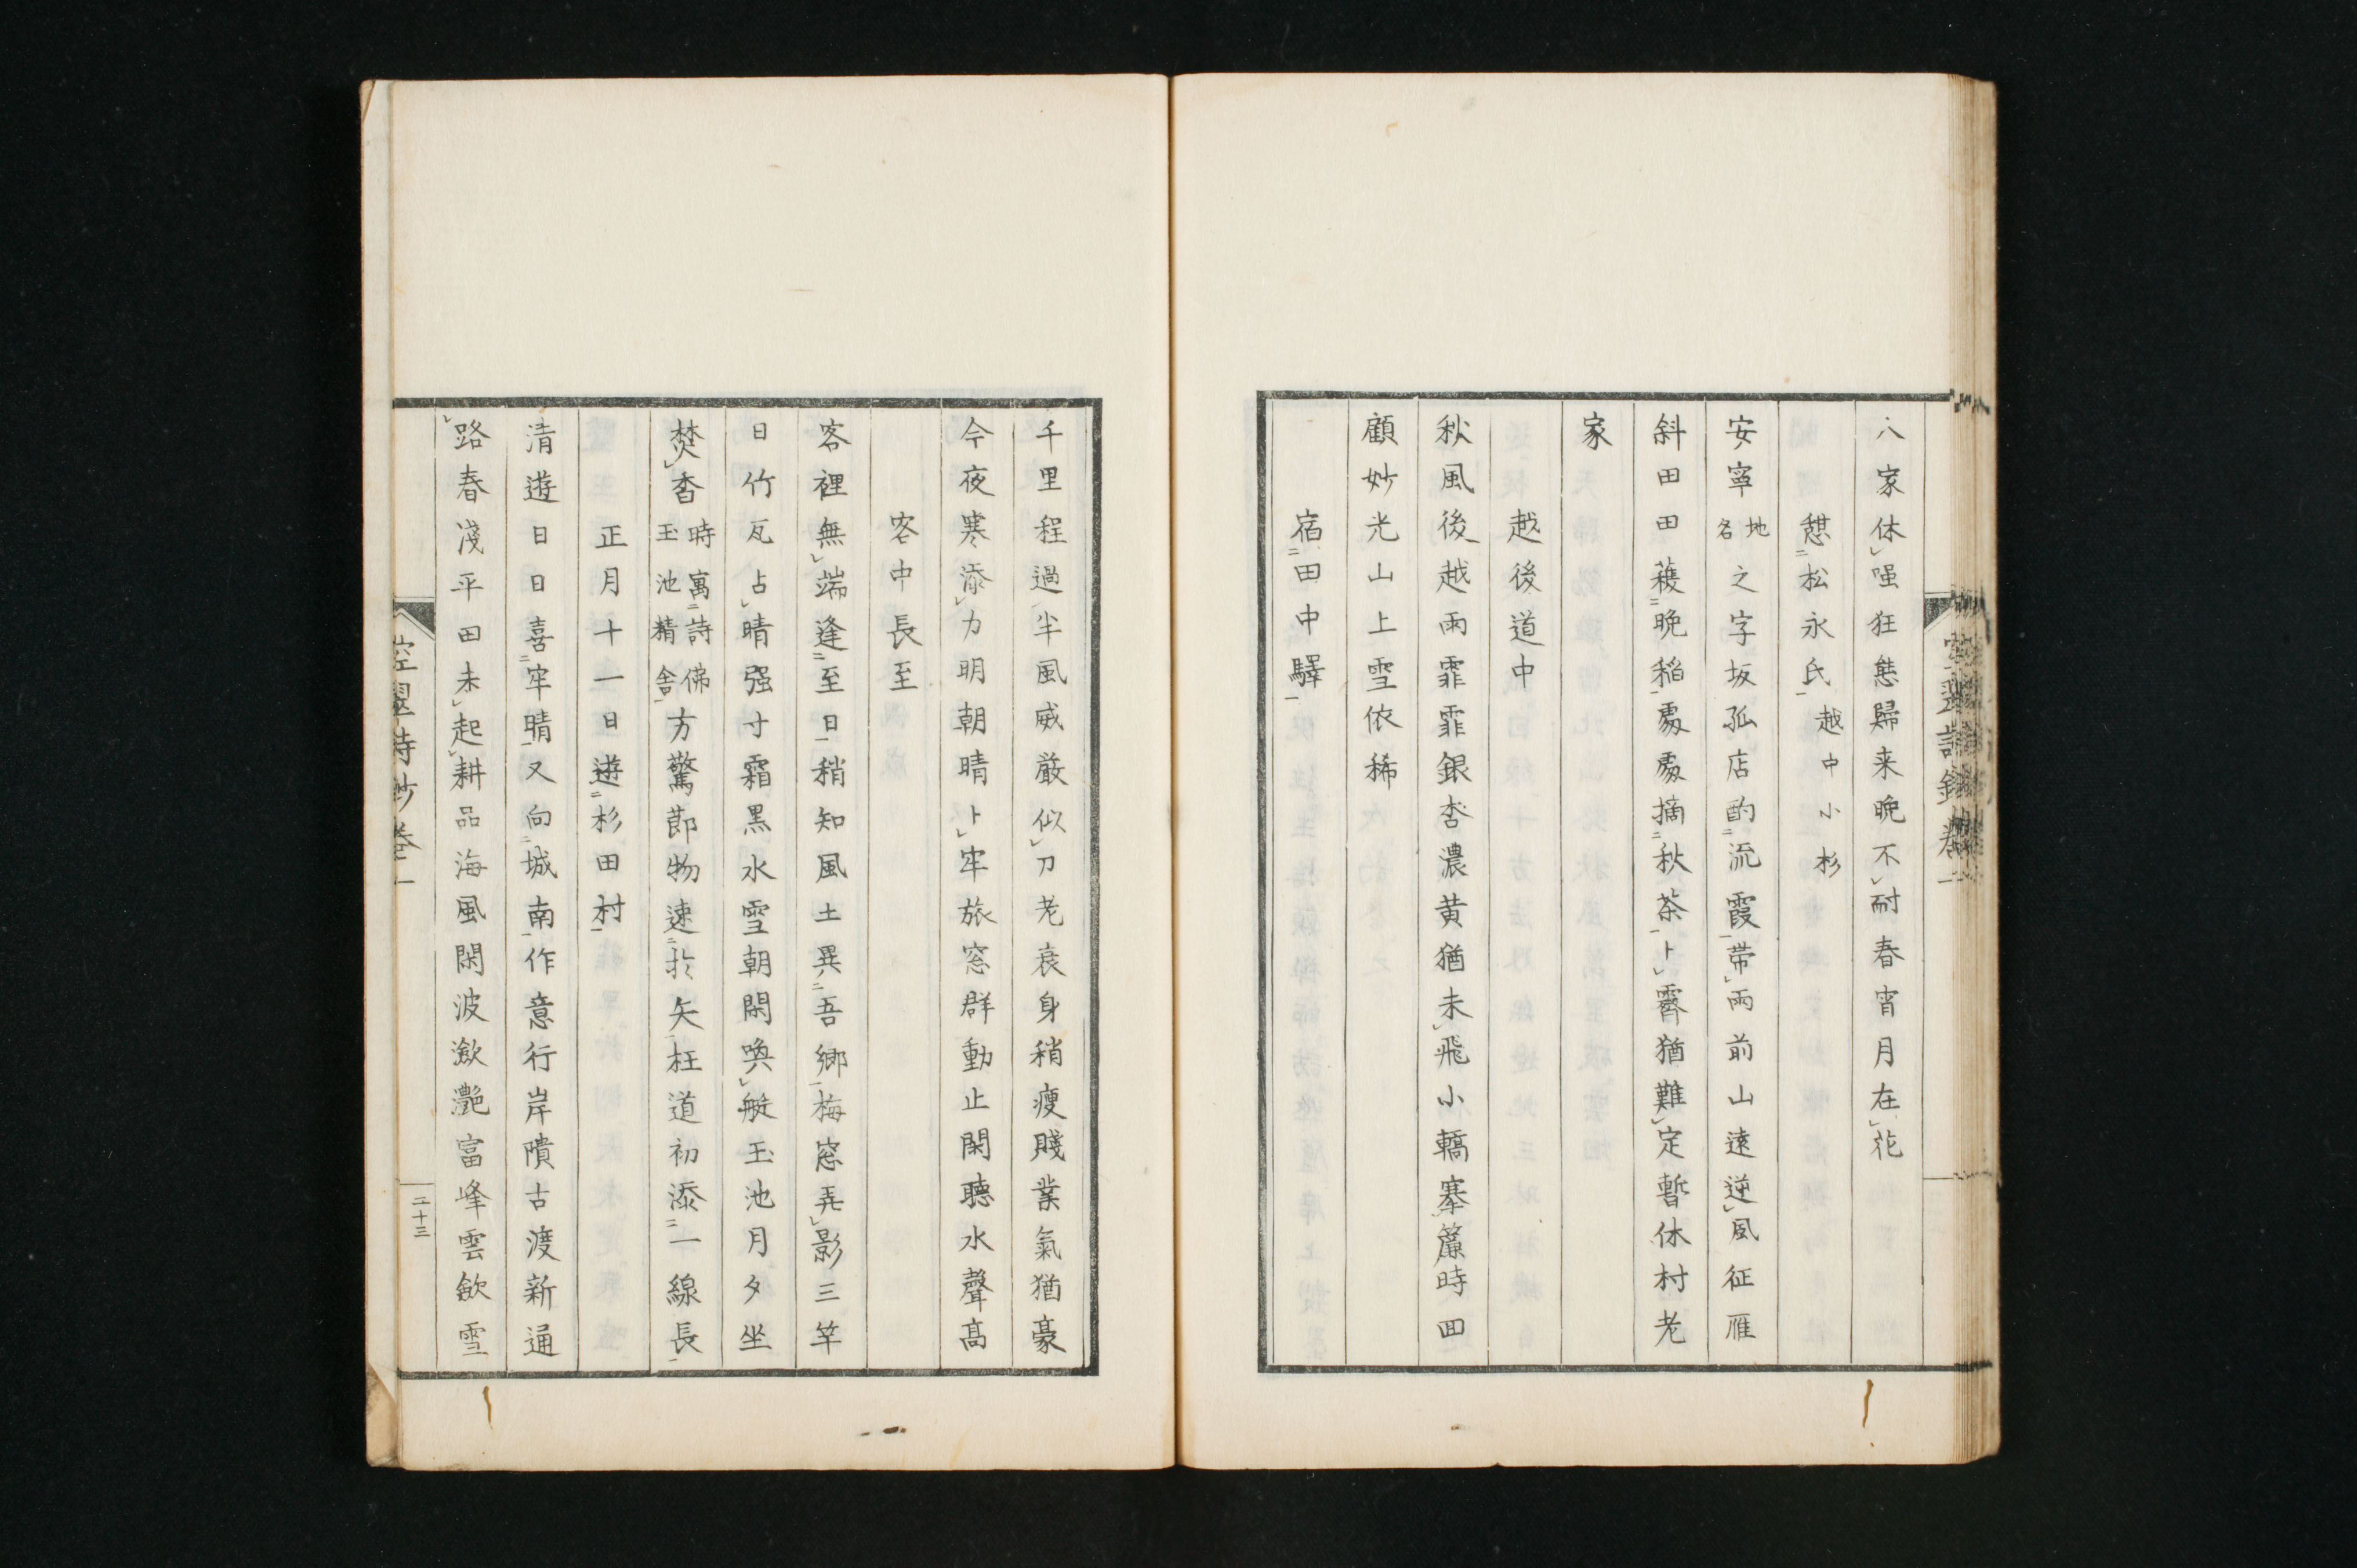 八家休嗤狂態歸来晩不耐春宵月在花
憇松永氏 越中小杉
安寧地名之字坂孤店酌流霞帯雨前山遠逆風征雁
斜田田穫晩稲處處摘秋茶卜霽猶難定暫休村老
家
越後道中
秋風後越雨霏霏銀杏濃黄猶未飛小轎搴簾時回
顧妙光山上雪依稀
宿田中驛
千里程過半風威厳似刀老衰身稍痩賤業氣猶豪
今夜寒添力明朝晴卜牢旅窓群動止閑聽水聲髙
客中長至
客裡無端逢至日稍知風土異吾郷梅窓弄影三竿
日竹瓦占晴强寸霜黒水雪朝閑喚艇玉池月夕坐
焚香時寓詩佛玉池精舎方驚節物速於矢枉道初添一線長
正月十一日遊杉田村
清遊日日喜牢晴又向城南作意行岸隤古渡新通
路春淺平田未起耕品海風閑波瀲灧富峰雲斂雪
空翠詩鈔卷一
二十三